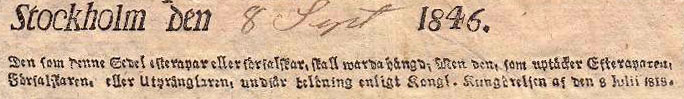 Stockholm den 8 Sept 1846.
Den som denne Sedel efterapar eller förfalskar, skall warda hängd; Men den, som uptäcker Efteraparen,
Förfalskaren, eller Utpränglaren, undfår belöning enligt Kongl. Kungörelsen af den 8 Julii 1818.